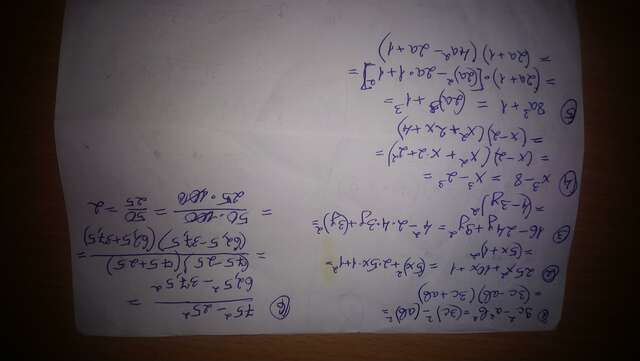 ① 9c² - a²b² = (3c)² - (ab)² =
= (3c - ab)(3c + ab)
② 25x² + 10x + 1 = (5x)² + 2·5x·1 + 1² =
= (5x + 1)²
③ 16 - 24y + 9y² = 4² - 2·4·3y + (3y)² =
= (4 - 3y)²
④ x³ - 8 = x³ - 2³ =
= (x - 2)(x² + x·2 + 2²) =
= (x - 2)(x² + 2x + 4)
⑤ 8a³ + 1 = (2a)³ + 1³ =
= (2a + 1)·[(2a)² - 2a·1 + 1²] =
= (2a + 1)(4a² - 2a + 1)
⑥ 75² - 25²
62,5² - 37,5² =
= (75 - 25)(75 + 25)
(62,5 - 37,5)(62,5 + 37,5) =
= 50·100
25·100 = 50
25 = 2